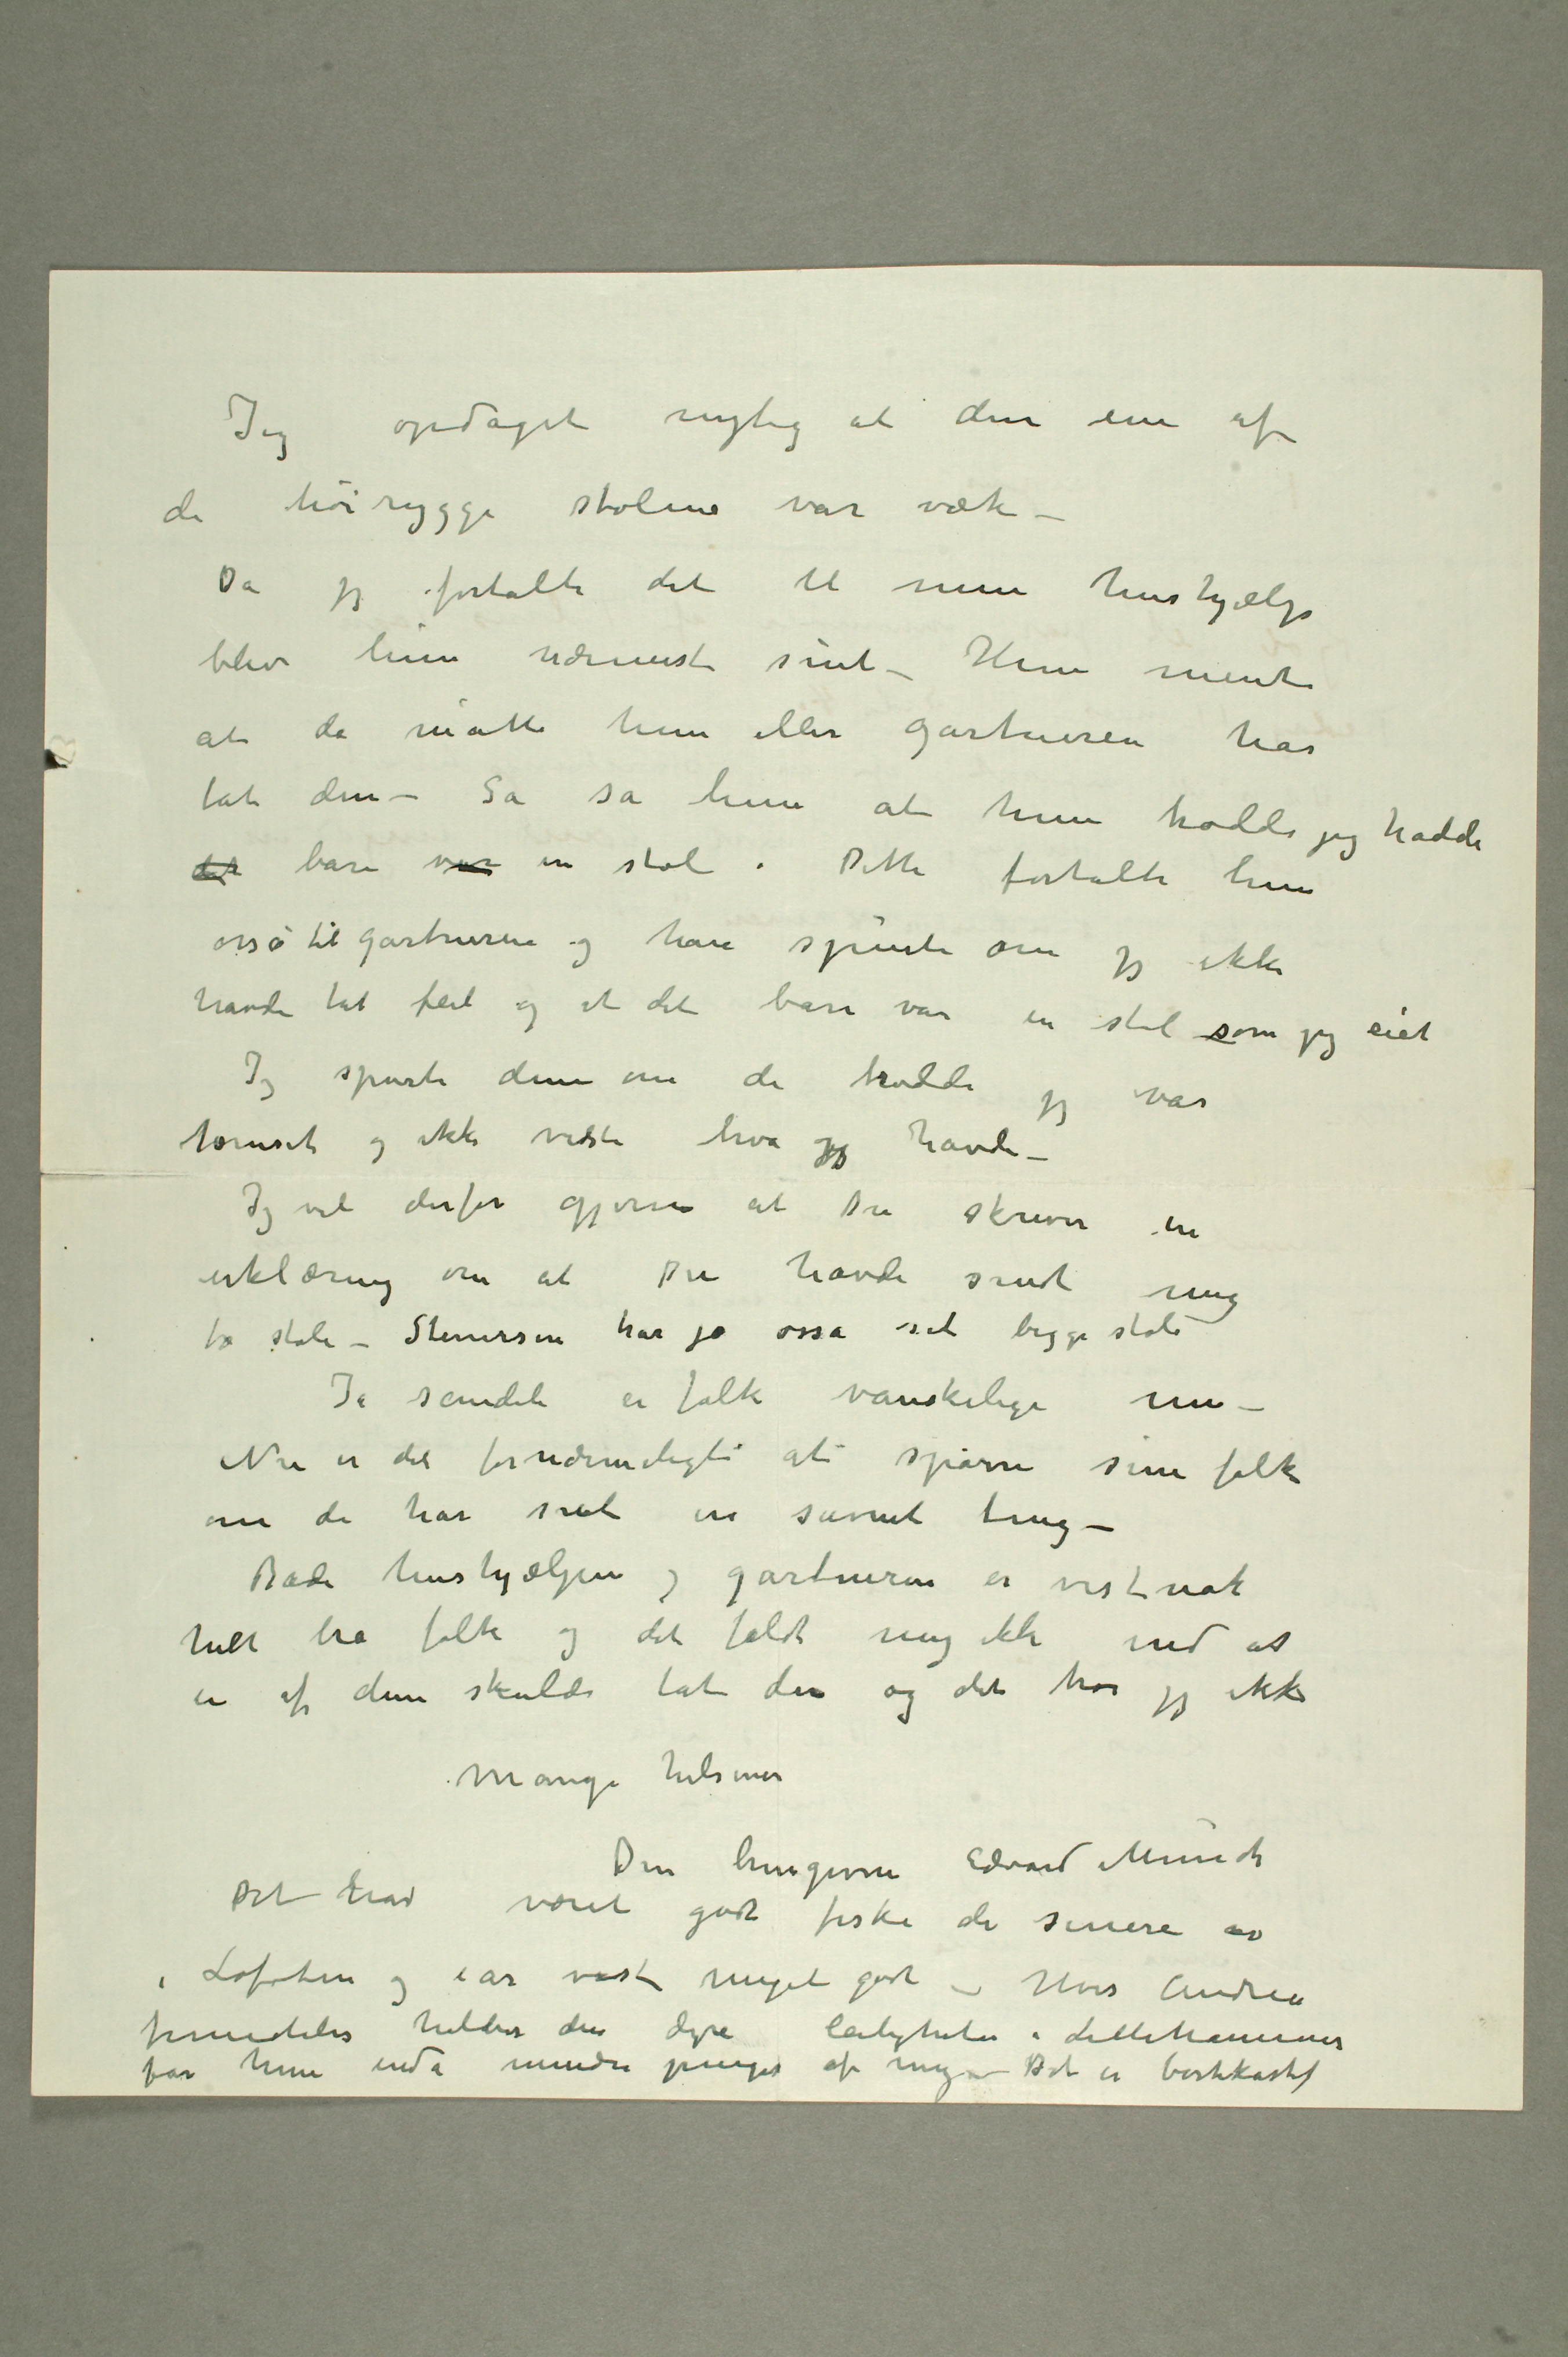 Jeg opdaget nylig at den ene af
de høirygge stolene var væk –
Da jg fortalte det til min hushjælp
blev hun nærmest sint – Hun mente
at da måtte hun eller gartneren har
tat den – Så sa hun at hun trodde jeg hadde
det bare var en stol. Dette fortalte hun
osså til gartneren og han spurte om jg ikke
havde tat feil og at det bare var en stol som jeg eiet
Jg spurte dem om de trodde jg var
tomset og ikke vidste hva jg havde –
Jg vil derfor gjerne at Du skriver en
erklæring om at Du havde sendt mig
to stole – Stenersen har jo osså set begge stole
Ja sandelig er folk vanskelige nu –
Nu er det fornærmeligt at spørre sine folk
om de har set en savnet ting –
Både hushjælpen og gartneren er vistnok
helt bra folk og det faldt mig ikke ind at
en af dem skulde tat den og det tror jg ikke
Mange hilsener
Din hengivne Edvard Munch
Det har været godt fiske de senere år
i Lofoten og iår visst meget godt – Hvis Andrea
fremdeles holder den dyre leilighet i Lillehammer
får hun endå mindre penger af mig – Det er bortkastet